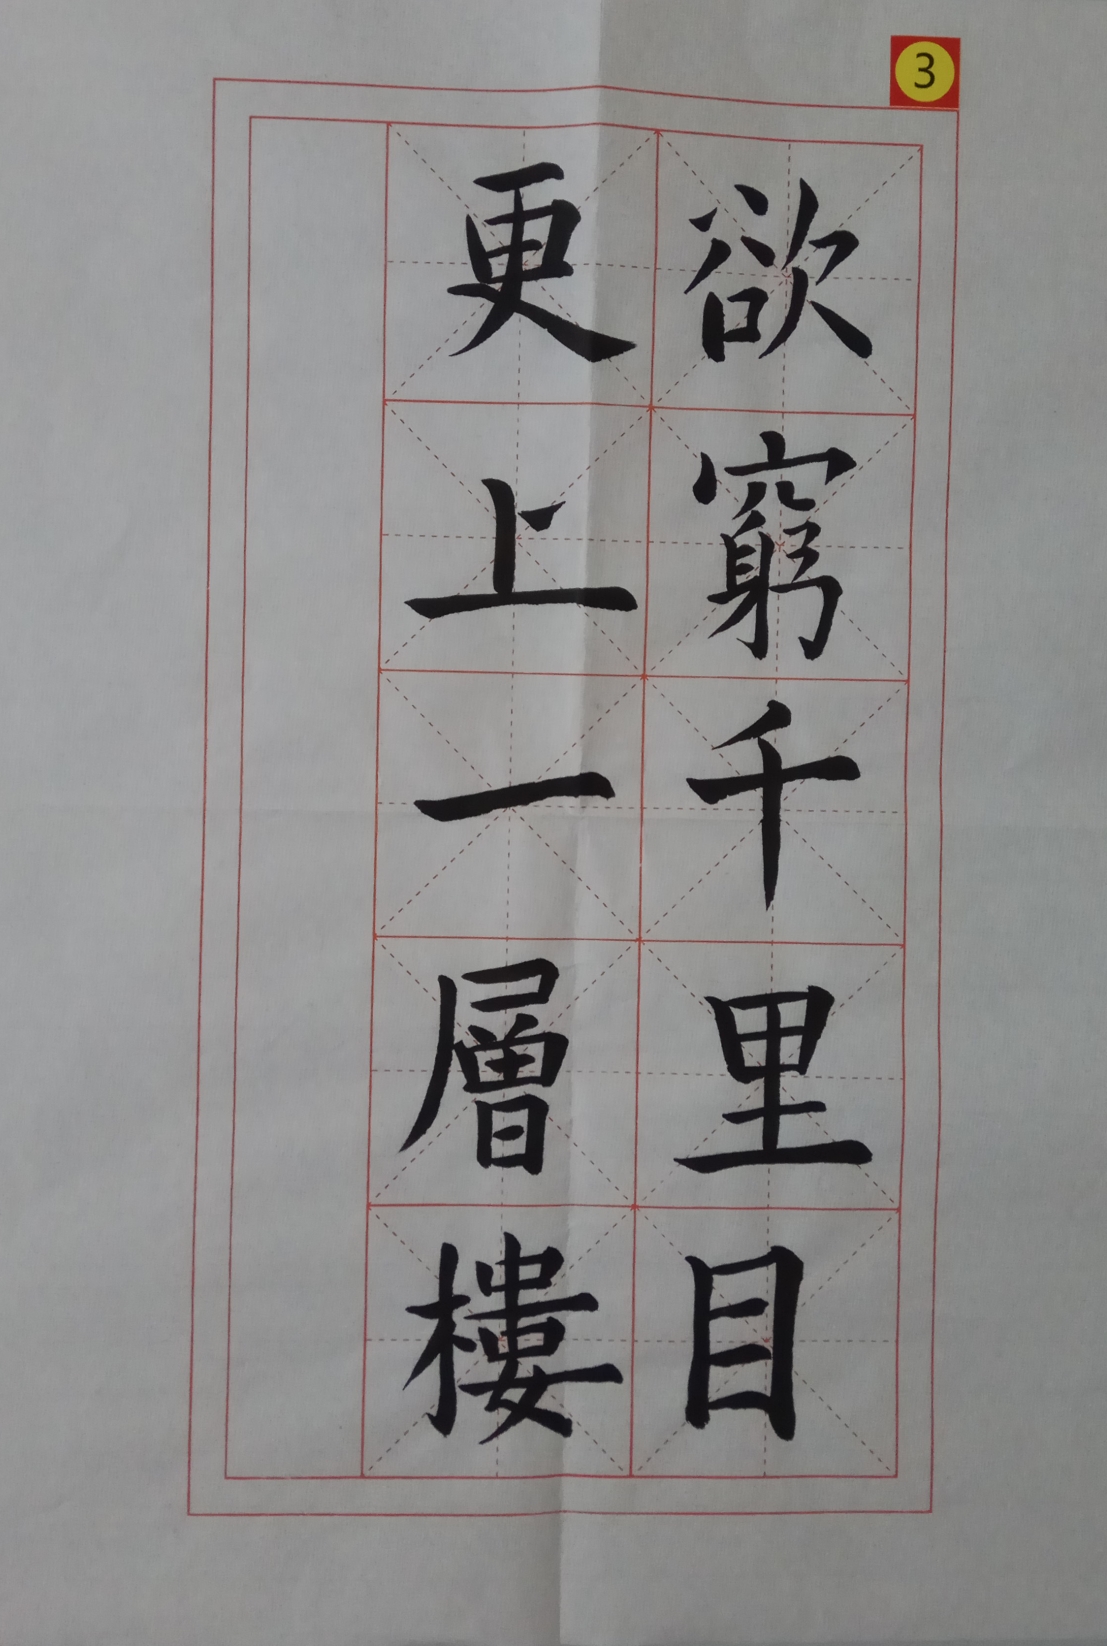 3
欲窮千里目
更上一層樓